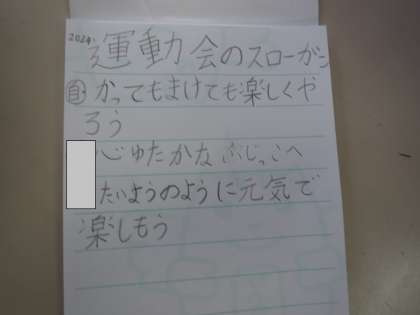 2024.
運動会のスローガン
自 かってもまけても楽しくや
ろう
心じゅたかな ふじっこへ
たいようのように元気で
楽しもう